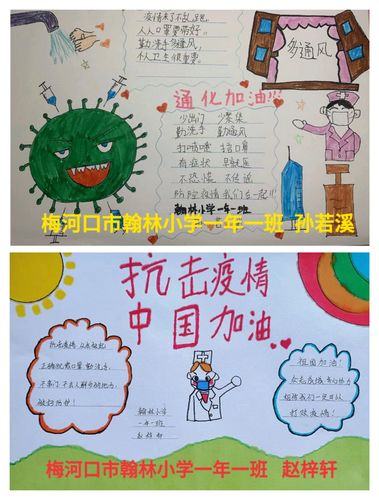 疫情来了不乱跑，
人人口罩要带好。
勤洗手多通风，
个人卫生很重要。
多通风
通化加油!!!
少出门 少聚集
勤洗手 勤通风
打喷嚏 捂口罩
有症状 早就医
不恐慌 不传谣
防控疫情我们在一起!!
翰林小学一年一班
梅河口市翰林小学一年一班 孙若溪
抗击疫情
中国加油
抗击疫情 从我做起
正确佩戴口罩 勤洗手,
做好防护!
翰林小学
一年一班
赵梓轩
祖国加油!
众志成城
打败疫情!
梅河口市翰林小学一年一班 赵梓轩